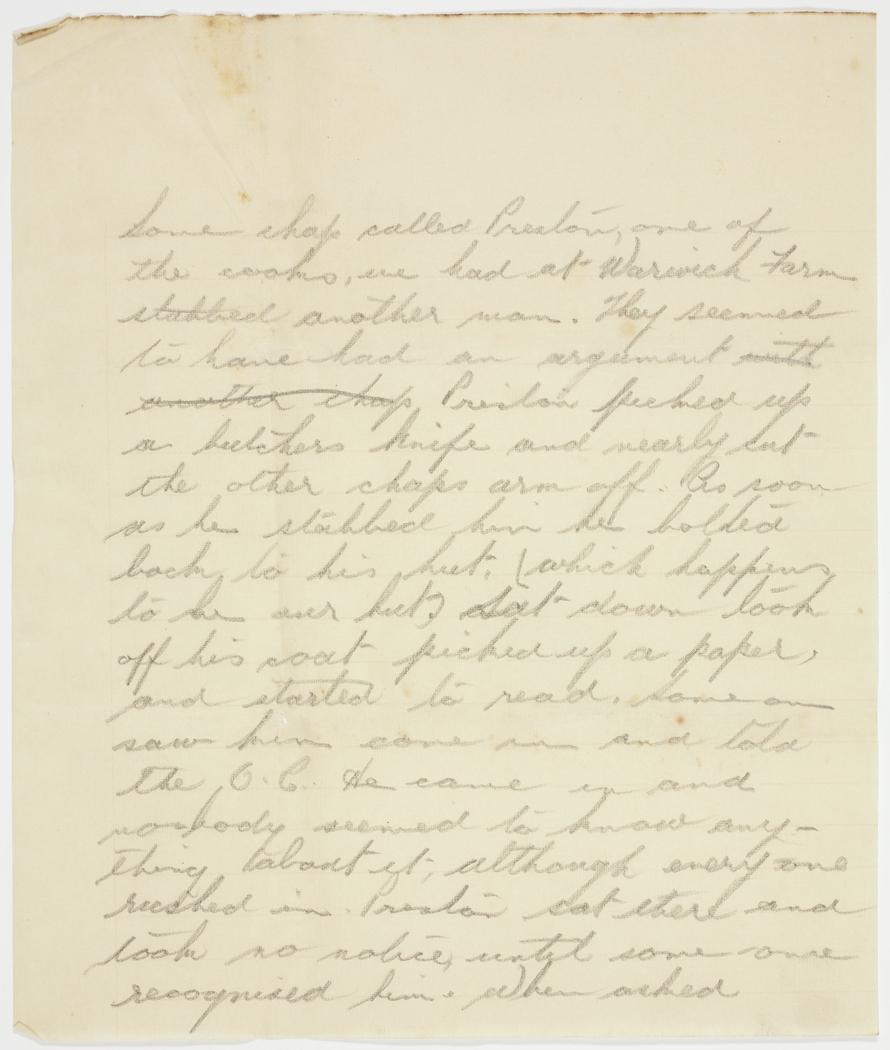 Some chap called Preston, one of
the cooks, we had at Warwick Farm
stabbed another man. They seemed
to have had an argument with
another chap Preston picked up
a butchers knife and nearly cut
the other chaps arm off. As soon
as he stabbed him he bolted
back to his hut, (which happens
to be our hut) sat down took
off his coat picked up a paper,
and started to read. Some on
saw him come in and told
the O.C. He came in and
nobody seemed to know any-
thing about it, although every one
rushed in. Preston sat there and
took no notice, until some one
recognised him. When asked